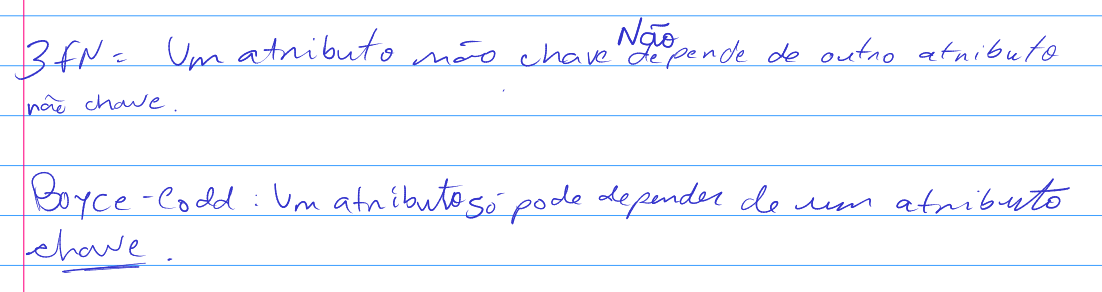 3fN = Um atributo não chave Não depende de outro atributo
não chave.
Boyce-Codd: Um atributo só pode depender de um atributo
chave.